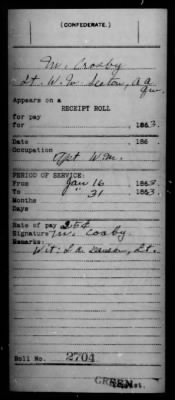 (CONFEDERATE.)
M. Crosby
Lt. W. M. Sexton, A a
Qm.
Appears on a
RECEIPT ROLL
for pay
for , 1863.
Date , 186 .
Occupation
Agt W.M.
PERIOD OF SERVICE:
From Jan 16 , 1863.
To " 31 , 1863.
Months
Days
Rate of pay 25¢
Signature M. Cosby
Remarks:
Wit: Lt.
Roll No. 2704
GREEN
Copyist.